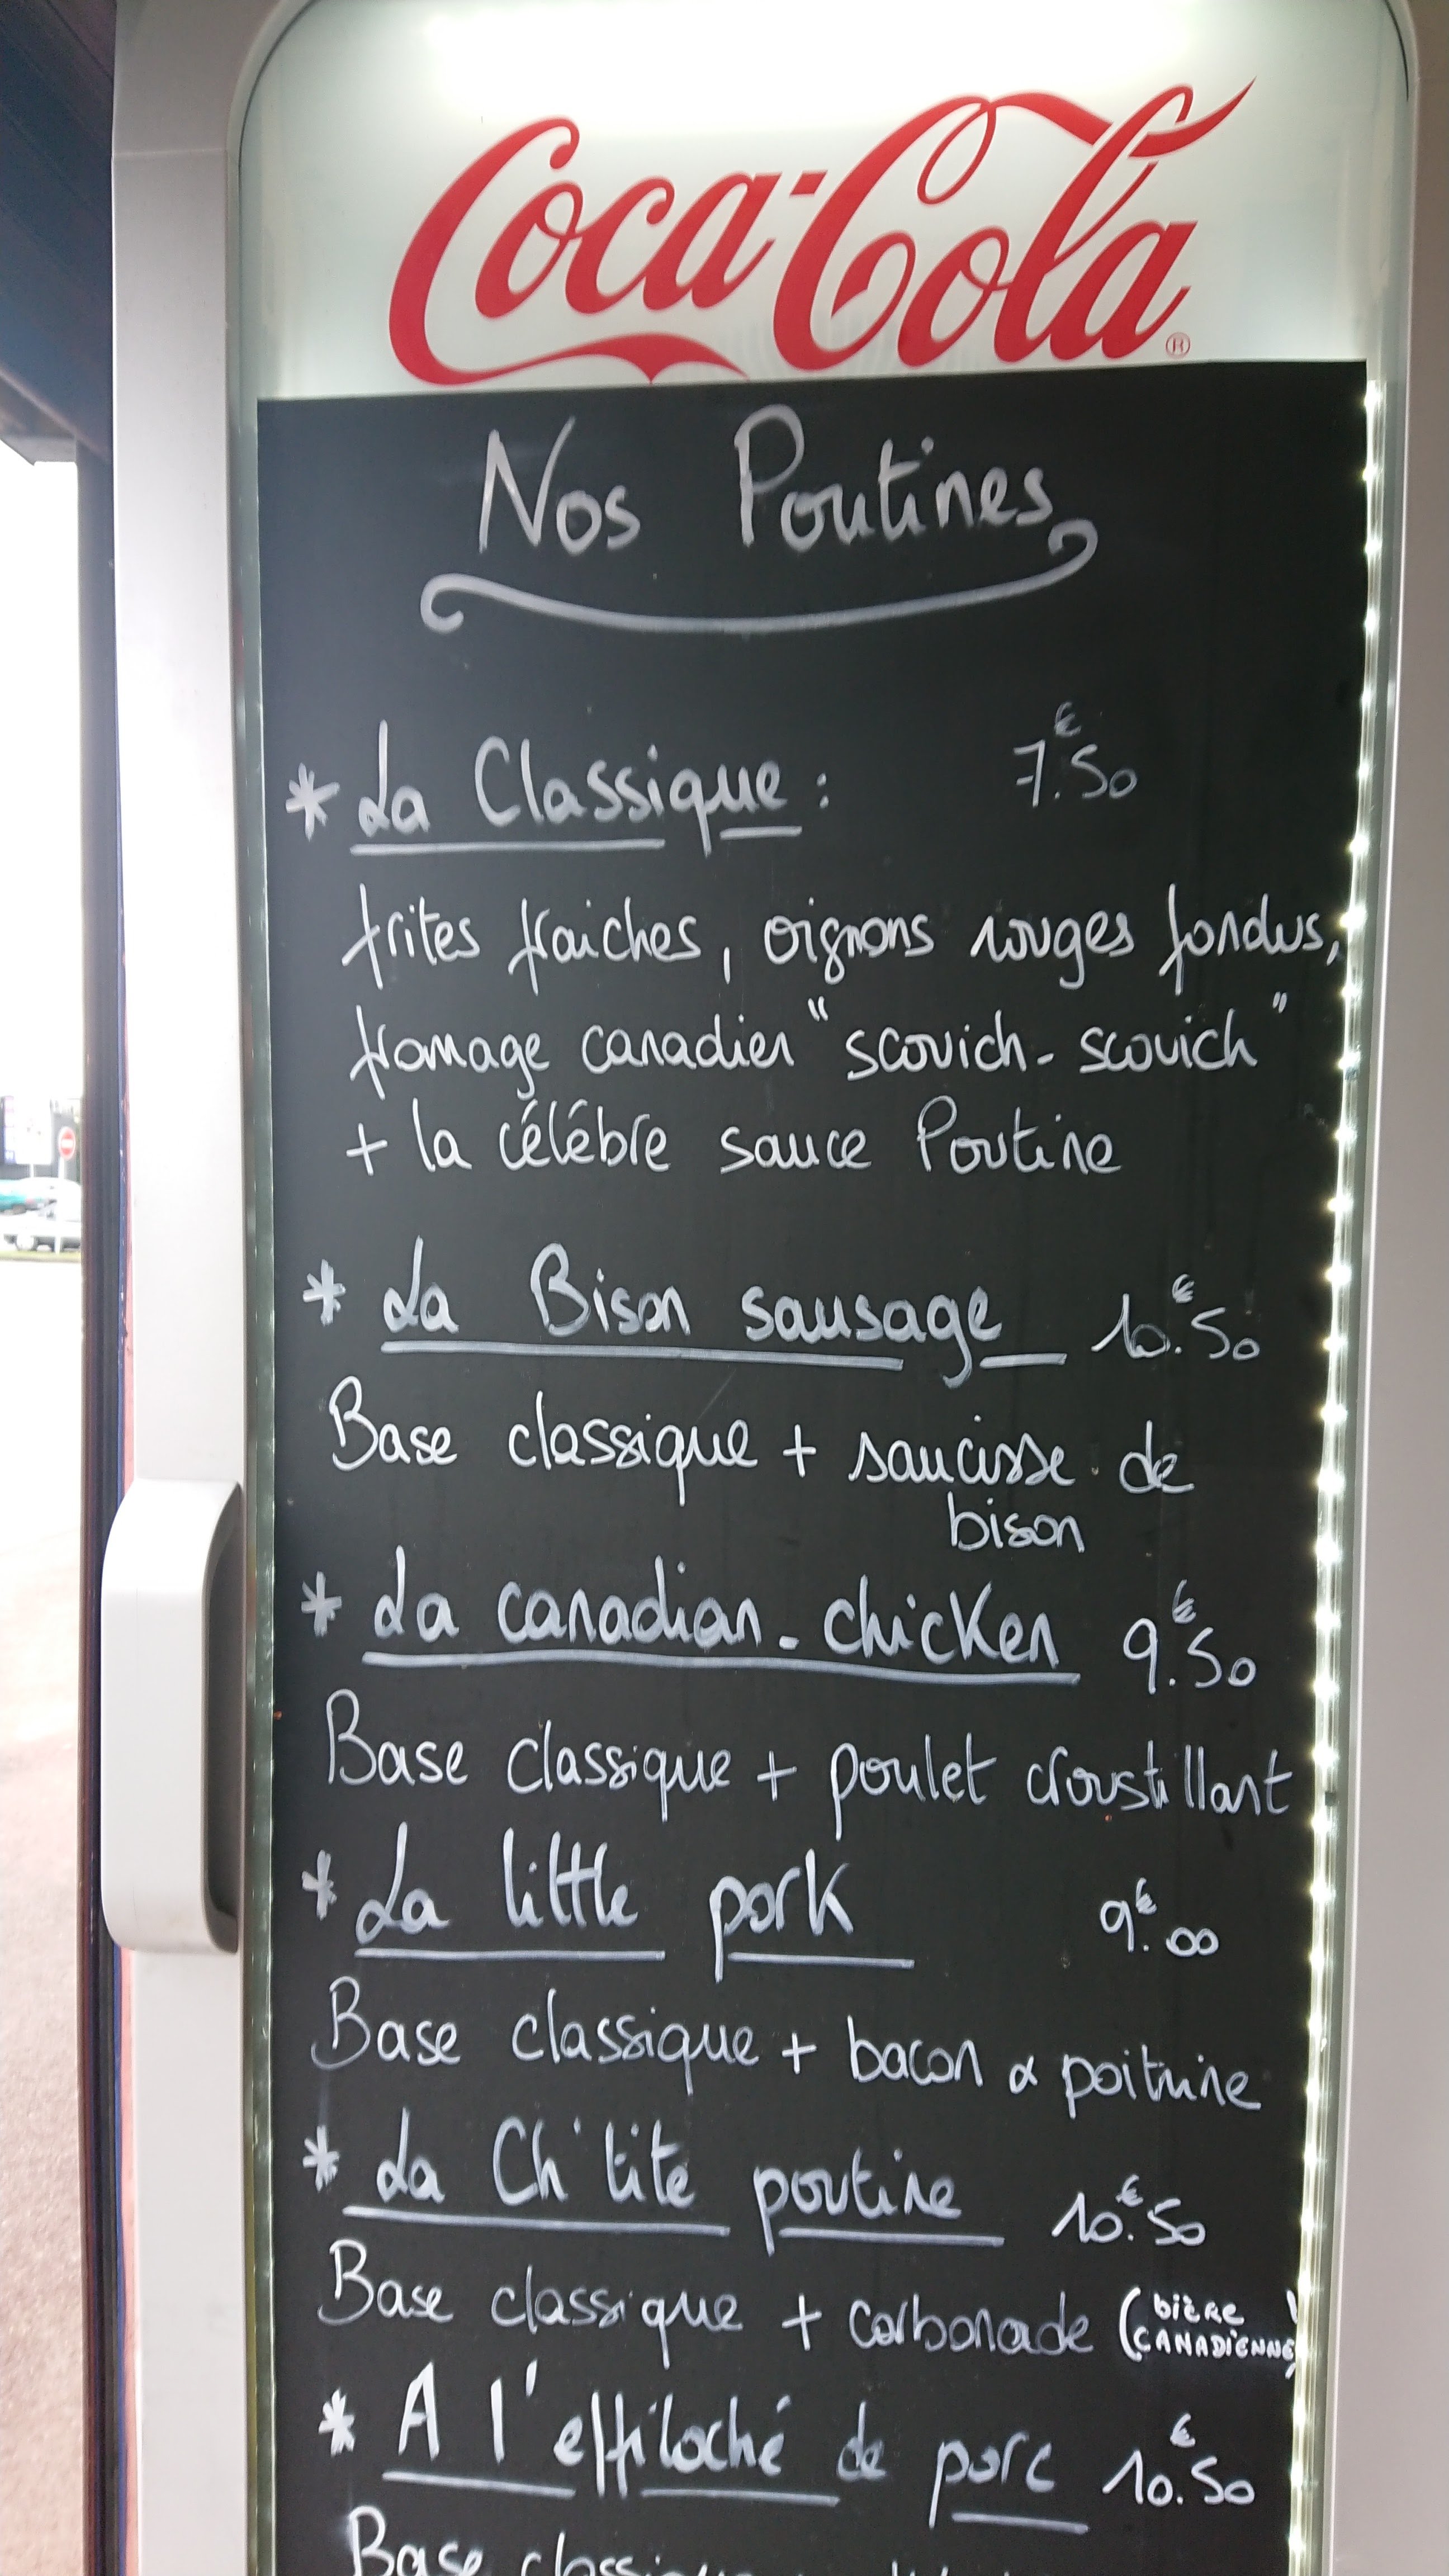 Coca-Cola®
Nos Poutines
* La Classique : 7.€50
frites fraiches, oignons rouges fondus,
fromage canadien "scouich-scouich"
+ la célébre sauce Poutine
* La Bison sausage 10.€50
Base classique + saucisse de
bison
* La canadian-chicken 9.€50
Base classique + poulet croustillant
* La little pork 9.€00
Base classique + bacon & poitrine
* La Ch'tite poutine 10.€50
Base classique + carbonade (bière
CANADIENNE)
* A l'effiloché de porc 10.€50
Base